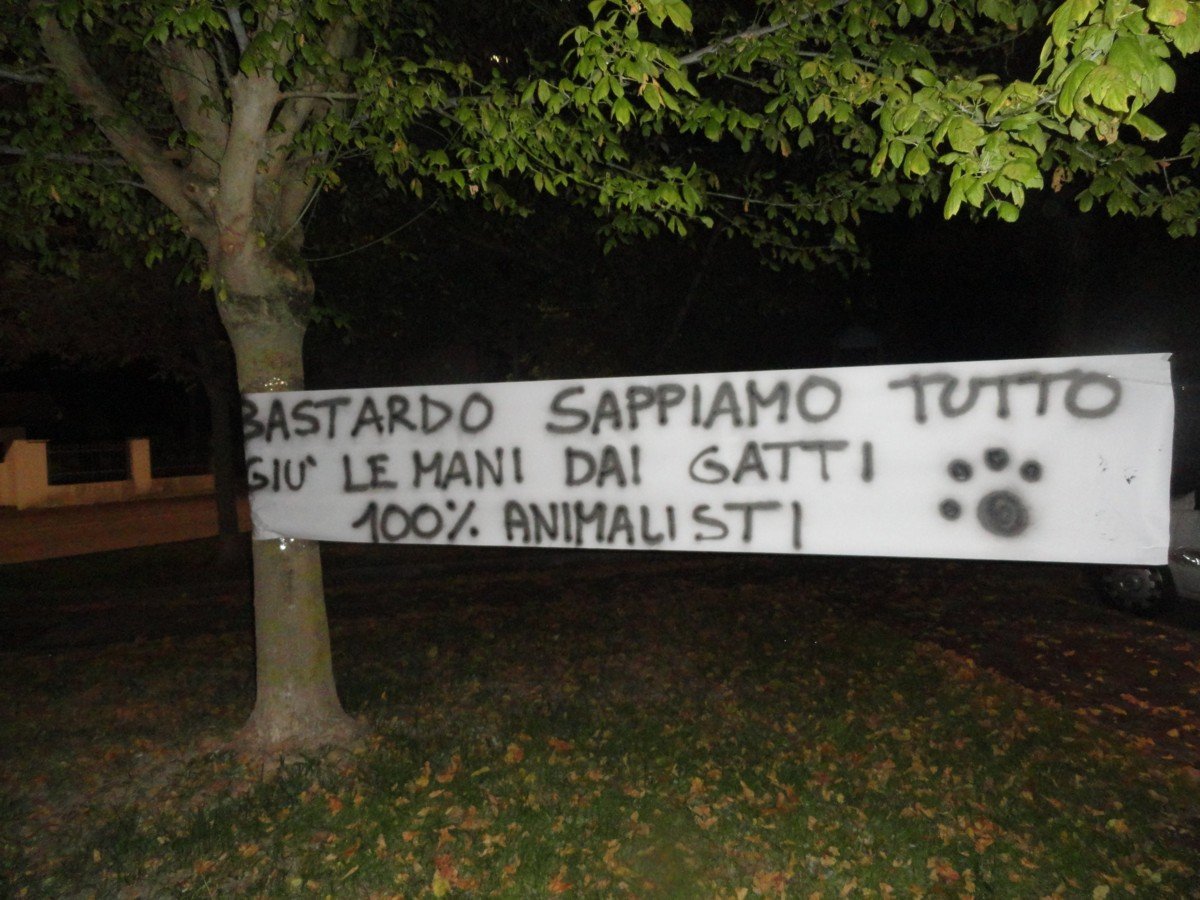 BASTARDO SAPPIAMO TUTTO
GIU' LE MANI DAI GATTI
100% ANIMALISTI